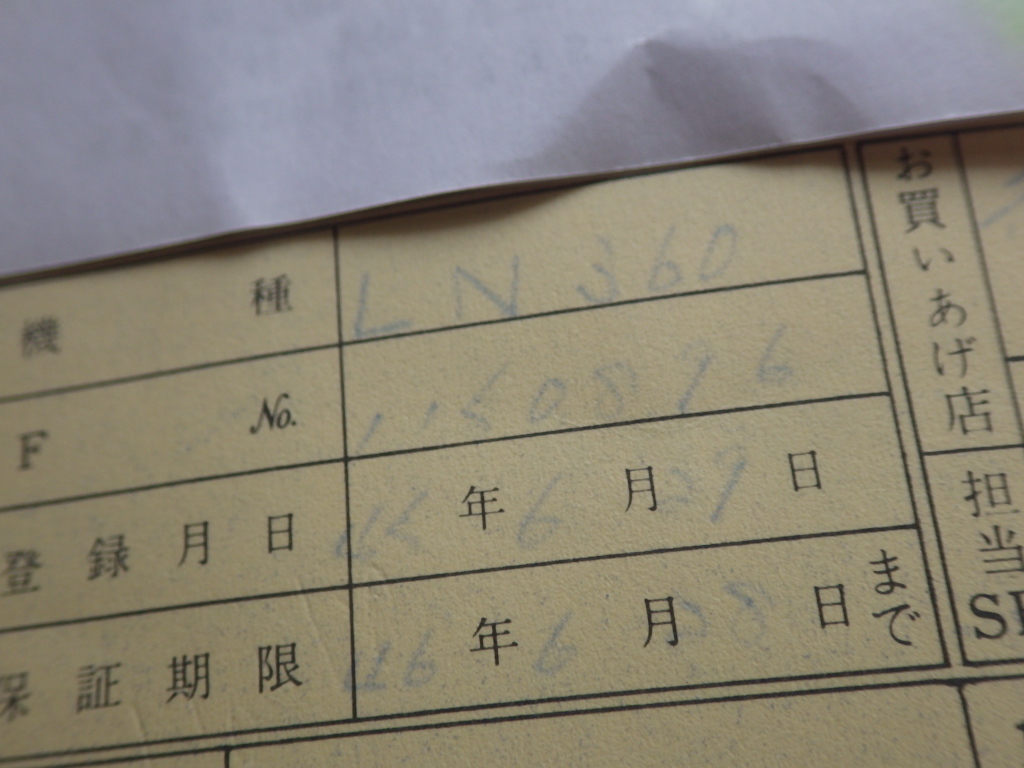 機種 LN360
F No. 1150896
登録月日 45年6月29日
保証期限 46年6月28日まで
お買いあげ店
担当